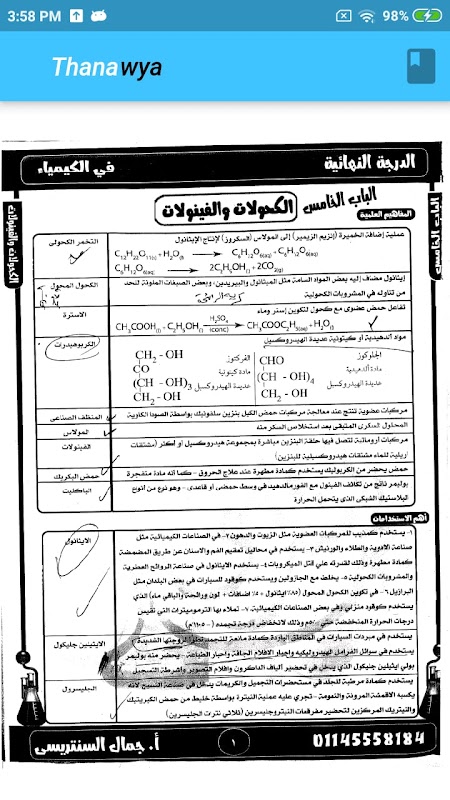 3:58 PM 98%
Thanawya
الدرجة النهائية في الكيمياء
الباب الخامس
الكحولات والفينولات
الباب الخامس
الكحولات والفينولات
المفاهيم العلمية
التخمر الكحولى
عملية إضافة الخميرة (إنزيم الزيميز) إلى المولاس (السكروز) لإنتاج الإيثانول
C12H22O11(s) + H2O(l) → C6H12O6(aq) + C6H12O6(aq)
C6H12O6(aq) → 2C2H5OH(l) + 2CO2(g)
الكحول المحول
إيثانول مضاف إليه بعض المواد السامة مثل الميثانول والبيريدين، وبعض الصبغات الملونة للحد
من تناوله في المشروبات الكحولية
الاسترة
تفاعل حمض عضوى مع كحول لتكوين إستر وماء
CH3COOH(l) + C2H5OH(l) H2SO4 (conc) CH3COOC2H5(aq) + H2O(l)
الكربوهيدرات
مواد ألدهيدية أو كيتونية عديدة الهيدروكسيل
الجلوكوز
مادة ألدهيدية
عديدة الهيدروكسيل
CHO
(CH – OH)4
CH2 – OH
الفركتوز
مادة كيتونية
عديدة الهيدروكسيل
CH2 – OH
CO
(CH – OH)3
CH2 – OH
المنظف الصناعى
مركبات عضوية تنتج عند معالجة مركبات حمض الكيل بنزين سلفونيك بواسطة الصودا الكاوية
المولاس
المحلول السكرى المتبقى بعد استخلاص السكر منه
الفينولات
مركبات أروماتية تتصل فيها حلقة البنزين مباشرة بمجموعة هيدروكسيل أو أكثر (مشتقات
اريلية للماء مشتقات هيدروكسيلية للبنزين)
حمض البكريك
حمض يحضر من الكربوليك يستخدم كمادة مطهرة عند علاج الحروق - كما انه مادة متفجرة
الباكليت
بوليمر ناتج من تكاثف الفينول مع الفورمالدهيد في وسط حمضى أو قاعدى - وهو نوع من أنواع
البلاستيك الشبكى الذى يتحمل الحرارة
أهم الاستخدامات
الايثانول
١- يستخدم كمذيب للمركبات العضوية مثل الزيوت والدهون ٢- في الصناعات الكيميائية مثل
صناعة الادوية والطلاء والورنيش ٣- يستخدم في محاليل تعقيم الفم والاسنان عن طريق المضمضة
كمادة مطهرة وذلك لقدرته على قتل الميكروبات ٤- يستخدم الايثانول في صناعة الروائح العطرية
والمشروبات الكحولية ٥- يخلط مع الجازولين ويستخدم كوقود للسيارات في بعض البلدان مثل
البرازيل ٦- في تكوين الكحول المحول (٨٥٪ ايثانول + ٥٪ اضافات + لون ورائحة والباقي ماء) الذي
يستخدم كوقود منزلي وفي بعض الصناعات الكيميائية ٧- تملاء بها الترمومترات التي تقيس
درجات الحرارة المنخفضة حتى وذلك لانخفاض درجة تجمده
الايثيلين جليكول
يستخدم في مبردات السيارات في المناطق الباردة كمادة مانعة للتجمد
يستخدم في سوائل الفرامل الهيدروليكية وأحبار الاقلام الجافة وأحبار الطباعة - يحضر منه بوليمر
بولي ايثيلين جليكول الذي يدخل في تحضير ألياف الداكرون وأفلام التصوير وأشرطة التسجيل
الجليسرول
يستخدم كمادة مرطبة للجلد في مستحضرات التجميل والكريمات يدخل في صناعة النسيج لأنه
يكسب الاقمشة المرونة والنعومة - تجري عليه عملية النيترة بواسطة خليط من حمض الكبريتيك
والنيتريك المركزين لتحضير مفرقعات النيتروجلسرين (ثلاثي نترات الجليسرين)
01145558184
١
أ. جمال السنتريسى